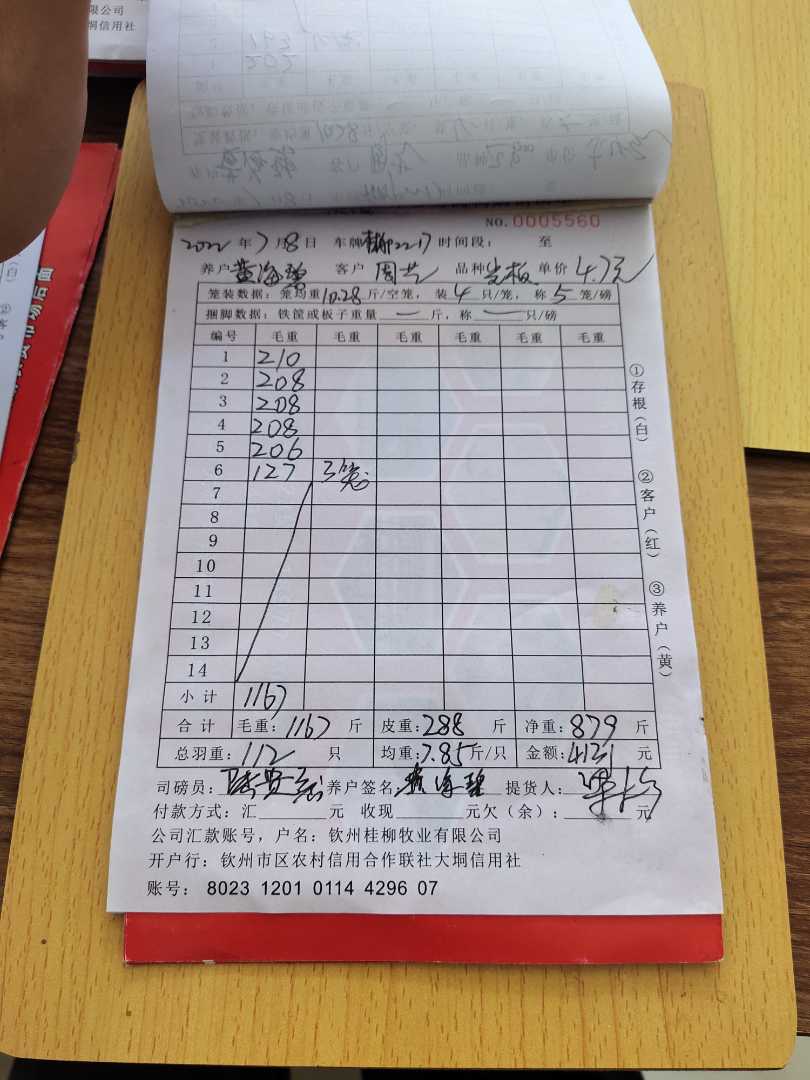 限公司
垌信用社
NO.0005560
2022年7月8日 车牌桂柳2217时间段： 至
养户黄海碧 客户周艺 品种 单价4.7元
笼装数据：笼均重10.28斤/空笼，装4只/笼，称5笼/磅
捆脚数据：铁筐或板子重量—斤，称—只/磅
编号 毛重 毛重 毛重 毛重 毛重 毛重
1 210
2 208
3 208
4 208
5 206
6 127 3笼
7
8
9
10
11
12
13
14
小计 1167
合计 毛重：1167斤 皮重：288斤 净重：879斤
总羽重：112只 均重：7.85斤/只 金额：4131元
①存根（白）
②客户（红）
③养户（黄）
司磅员： 养户签名：黄海碧 提货人：
付款方式：汇 元 收现 元欠（余）： 元
公司汇款账号，户名：钦州桂柳牧业有限公司
开户行：钦州市区农村信用合作联社大垌信用社
账号：8023 1201 0114 4296 07